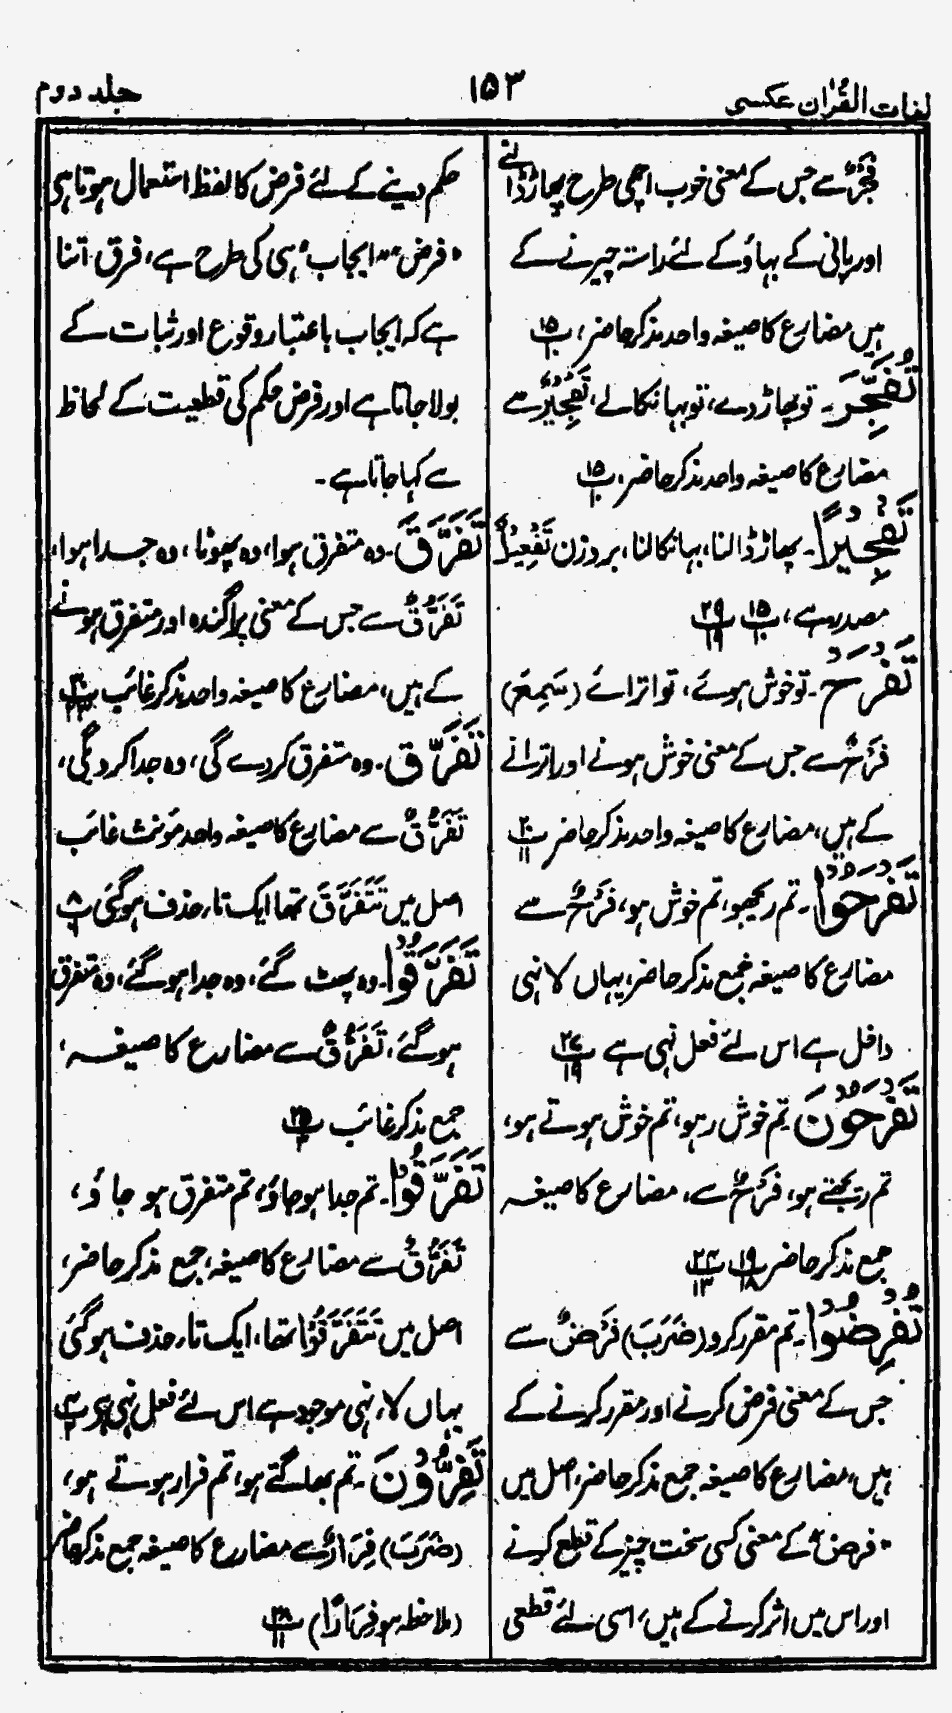 لغات القرآن عکسی
۱۵۳
جلد دوم
فَجْرٌ سے جس کے معنی خوب اچھی طرح پھاڑ ڈالنے
اور پانی کے بہاؤ کے لئے راستہ چیرنے کے
ہیں مضارع کا صیغہ واحد مذکر حاضر، پ ۱۵
تُفَجِّرَ۔ تو پھاڑ دے، تو بہا نکالے، تَفْجِیْرٌ سے
مضارع کا صیغہ واحد مذکر حاضر، پ ۱۵ ۱۰
تَفْجِیْرًا۔ پھاڑ ڈالنا، بہا نکالنا، بروزن تَفْعِیْلٌ
مصدر ہے، پ ۱۵ ۱۰ پ ۲۹ ۱۹
تَفْرَحْ۔ تو خوش ہوئے، تو اترائے (سَمِعَ)
فَرْحٌ سے جس کے معنی خوش ہونے اور اترانے
کے ہیں، مضارع کا صیغہ واحد مذکر حاضر پ ۲۰ ۱۱
تَفْرَحُوْا۔ تم ریجھو، تم خوش ہو، فَرْحٌ سے
مضارع کا صیغہ جمع مذکر حاضر، یہاں لا نہی
داخل ہے اس لئے فعل نہی ہے پ ۲۷ ۱۹
تَفْرَحُوْنَ۔ تم خوش رہو، تم خوش ہوتے ہو،
تم ریجھتے ہو، فَرْحٌ سے، مضارع کا صیغہ
جمع مذکر حاضر پ ۱۹ ۱۸ پ ۲۴ ۱۳
تَفْرِضُوْا۔ تم مقرر کرو (ضَرَبَ) فَرْضٌ سے
جس کے معنی فرض کرنے اور مقرر کرنے کے
ہیں، مضارع کا صیغہ جمع مذکر حاضر، اصل میں
"فرض" کے معنی کسی سخت چیز کے قطع کرنے
اور اس میں اثر کرنے کے ہیں، اسی لئے قطعی
حکم دینے کے لئے فرض کا لفظ استعمال ہوتا ہی
"فرض" "ایجاب" ہی کی طرح ہے، فرق اتنا
ہے کہ ایجاب باعتبار وقوع اور ثبات کے
بولا جاتا ہے اور فرض حکم کی قطعیت کے لحاظ
سے کہا جاتا ہے۔
تَفَرَّقَ۔ وہ متفرق ہوا، وہ پھوٹا، وہ جدا ہوا،
تَفَرُّقٌ سے جس کے معنی پراگندہ اور متفرق ہونے
کے ہیں، مضارع کا صیغہ واحد مذکر غائب
تَفَرَّقَ۔ وہ متفرق کر دے گی، وہ جدا کر دیگی،
تَفَرُّقٌ سے مضارع کا صیغہ واحد مؤنث غائب
اصل میں تَتَفَرَّقَ تھا ایک تاء حذف ہوگئی پ ۸
تَفَرَّقُوْا۔ وہ پھٹ گئے، وہ جدا ہوگئے، وہ متفرق
ہوگئے، تَفَرُّقٌ سے مضارع کا صیغہ،
جمع مذکر غائب پ ۲۵
تَفَرَّقُوْا۔ تم جدا ہو جاؤ، تم متفرق ہو جاؤ،
تَفَرُّقٌ سے مضارع کا صیغہ، جمع مذکر حاضر،
اصل میں تَتَفَرَّقُوْا تھا، ایک تاء حذف ہوگئی
یہاں لاء نہی موجود ہے اس لئے فعل نہی ہی
تَفِرُّوْنَ۔ تم بھاگتے ہو، تم فرار ہوتے ہو،
(ضَرَبَ) فِرَارٌ سے مضارع کا صیغہ جمع مذکر حاضر
(ملاحظہ ہو فِرَارًا) پ ۲۸ ۱۱